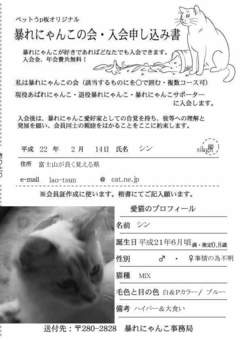 ペットうp板オリジナル
暴れにゃんこの会・入会申し込み書
暴れにゃんこが好きであればどなたでも入会できます。
入会金、年会費共無料!
私は暴れにゃんこの会（該当するものに○で囲む・複数コース可）
現役あばれにゃんこ・退役暴れにゃんこ・暴れにゃんこサポーター
に入会します。
入会後は、暴れにゃんこ愛好家としての自覚を持ち、彼等への理解と
発展を願い、会員同士の親睦をはかることをここに約束します。
平成 22 年 2 月 14日 氏名 シン
住所 富士山が良く見える県
e-mail lao-tsun @ cat.ne.jp
※会員証作成に使います。楷書にてご記入願います。
愛猫のプロフィール
名前 シン
誕生日 平成21年6月頃
性別 ♂ ・ ♀ 事情の為不明
猫種 MIX
毛色と目の色 白&Pカラー/ ブルー
備考 ハイパー&大食い
送付先：〒280-2828 暴れにゃんこ事務局